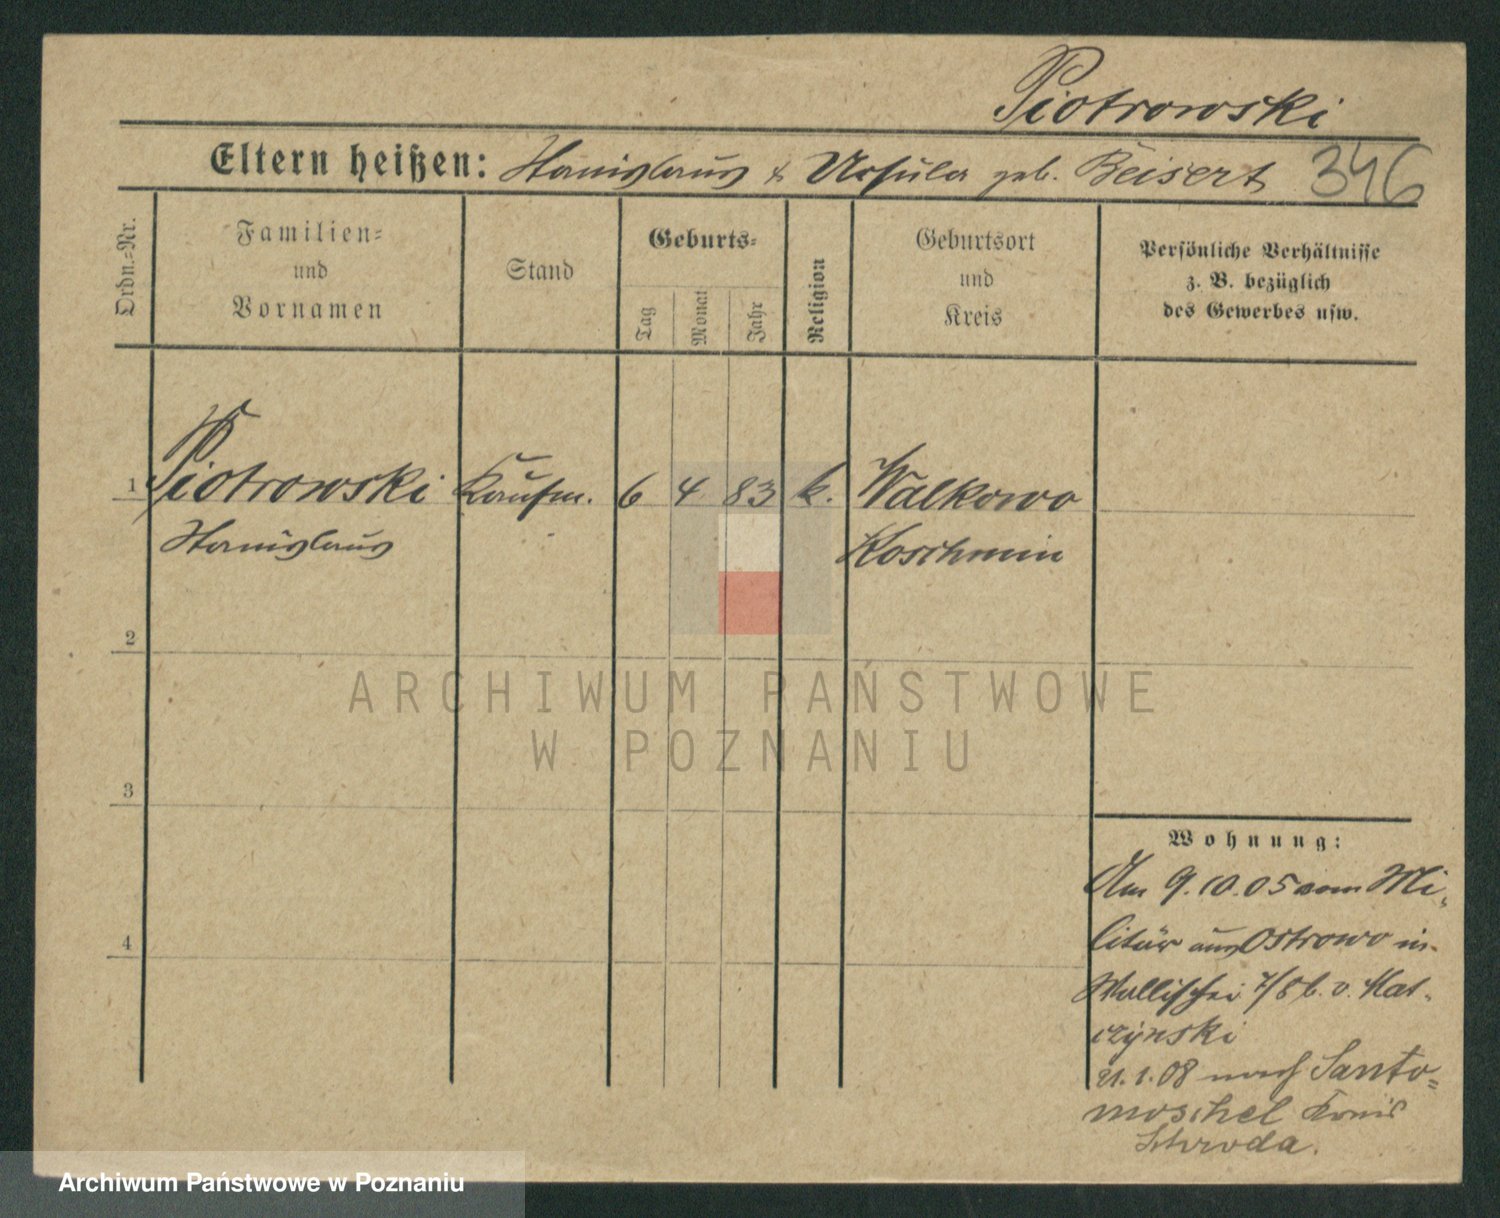 Piotrowski
Eltern heißen: Stanislaus & Ursula geb. Beisert 346
Ordn.-Nr.
Familien-
und
Vornamen
Stand
Geburts-
Tag
Monat
Jahr
Religion
Geburtsort
und
Kreis
Persönliche Verhältnisse
z. B. bezüglich
des Gewerbes usw.
1 Piotrowski Kaufm. 6 4 83 k. Walkowo
Stanislaus Koschmin
2
ARCHIWUM PAŃSTWOWE
W POZNANIU
3
Wohnung:
Am 9.10.05 vom Mi-
litär aus Ostrowo in
Wallischei 7/8 b. v. Kat-
czynski
21.1.08 nach Santo-
moschel Kreis
Schroda.
4
Archiwum Państwowe w Poznaniu